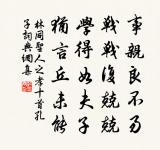 事親良不易
戰戰復兢兢
學得如夫子
猶言丘未能
林同聖人之孝十首孔
子詞典網喜